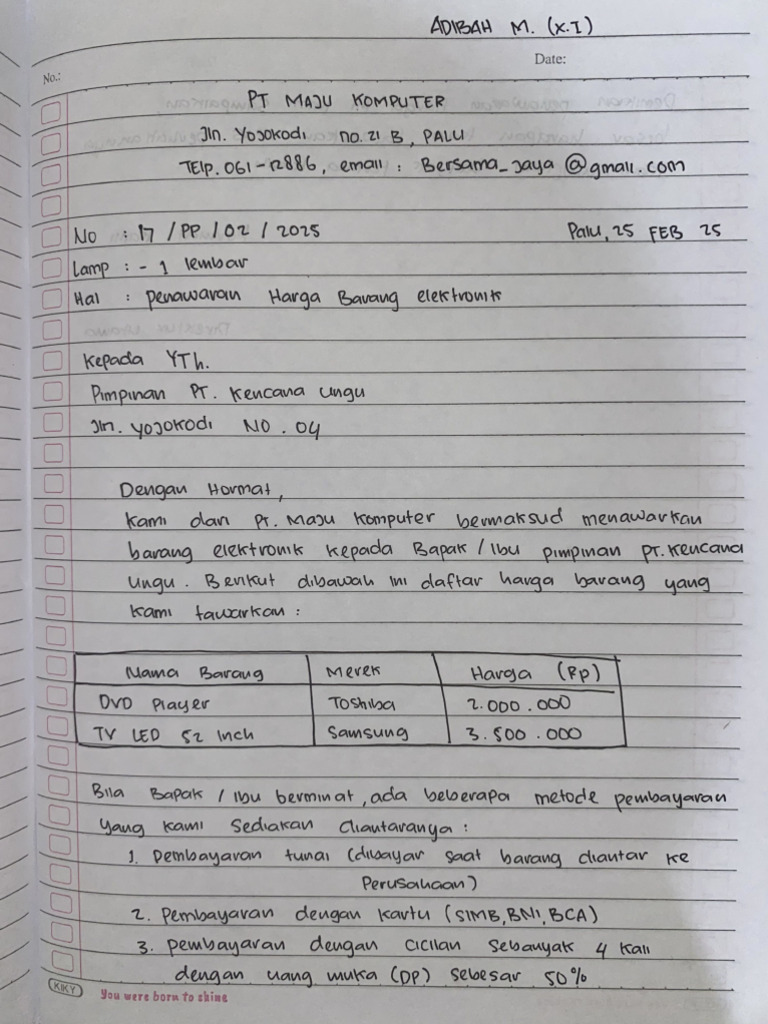 ADIBAH M. (X.I)
No.:
Date:
PT MAJU KOMPUTER
Jln. Yojokodi no. 21 B, PALU
TElp. 061-12886, email : Bersama_Jaya @gmail.com
No : 17 / PP / 02 / 2025 Palu, 25 FEB 25
Lamp : - 1 lembar
Hal : Penawaran Harga Barang elektronik
Kepada YTh.
Pimpinan PT. Kencana Ungu
Jln. Yojokodi NO. 04
Dengan Hormat,
Kami dari PT. Maju Komputer bermaksud menawarkan
barang elektronik kepada Bapak / Ibu pimpinan PT. Kencana
Ungu. Berikut dibawah ini daftar harga barang yang
Kami tawarkan :
Nama Barang Merek Harga (Rp)
DVD Player Toshiba 2.000.000
TV LED 52 Inch Samsung 3.500.000
Bila Bapak / Ibu berminat, ada beberapa metode pembayaran
yang kami Sediakan diantaranya :
1. Pembayaran tunai (dibayar saat barang diantar ke
Perusahaan)
2. Pembayaran dengan kartu (SIMB, BNI, BCA)
3. pembayaran dengan cicilan sebanyak 4 kali
dengan uang muka (DP) sebesar 50%
KIKY You were born to shine